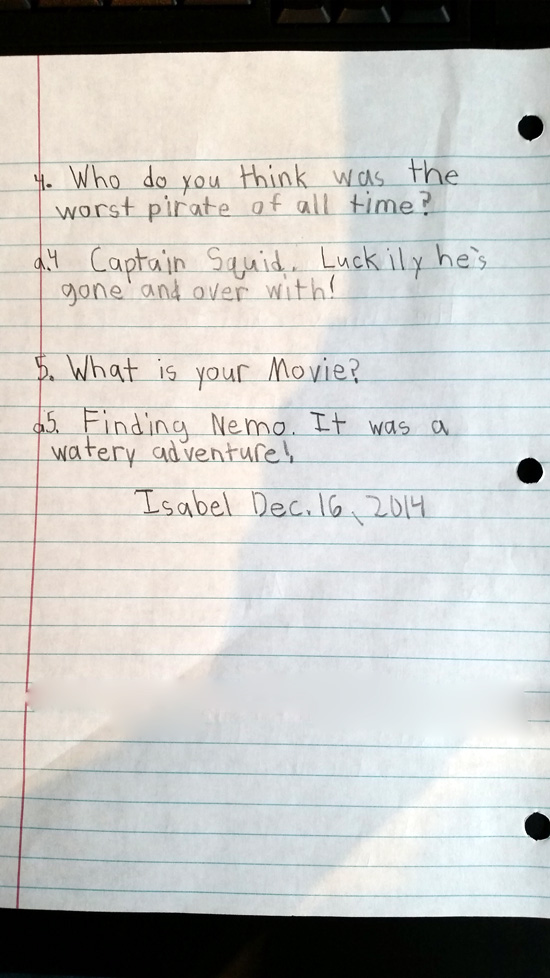 4. Who do you think was the
worst pirate of all time?
a.4 Captain Squid. Luckily he's
gone and over with!
5. What is your Movie?
a5. Finding Nemo. It was a
watery adventure!
Isabel Dec. 16, 2014